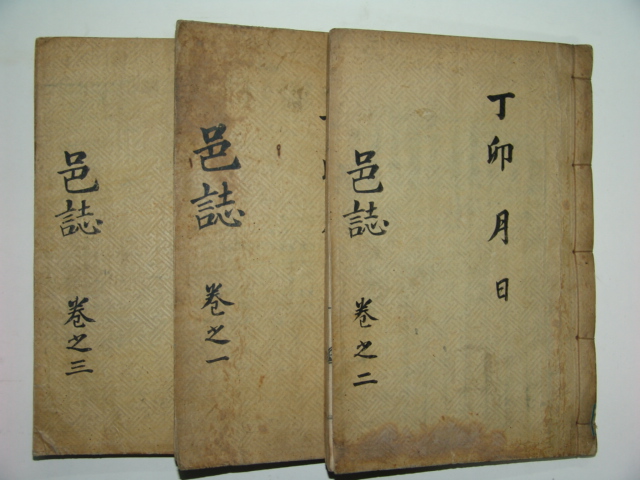 丁卯月日
邑誌
卷之二
邑誌
卷之一
邑誌
卷之三